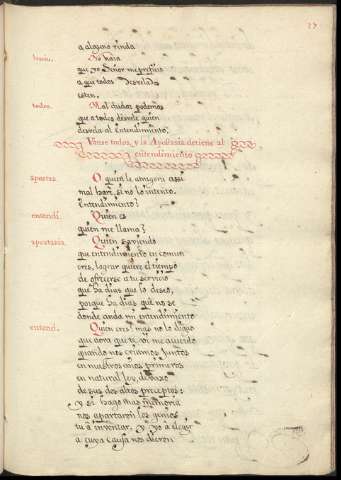 23
a alguno rinda
No haia
que, yo Señor me prefiero
a que todos desvelados
esten.
todos. Mal dudar podemos
que a todos desvele quien
desvela al Entendimiento.
Vanse todos, y la Apostasia detiene al
entendimiento
apostas. O quien le amagara assi
mal haré, si no lo intento.
Entendimiento?
entendi. Quien es
quien me llama?
apostasia. Quien saviendo
que entendimiento en comun
eres, lograr quiere el tiempo
de ofrecerse a tu servicio
que ha dias que lo deseo,
porque ha dias que no se
donde anda mi entendimiento
entend. Quien eres? mas no lo digas
que aora que te vi me acuerdo
quando nos criamos juntos
en nuestros años primeros
en natural ley, debaxo
de sus dos altos preceptos:
y si hago mas memoria
nos apartaron los genios
tu a inventar, y yo a elegir
a cuya causa nos dieron